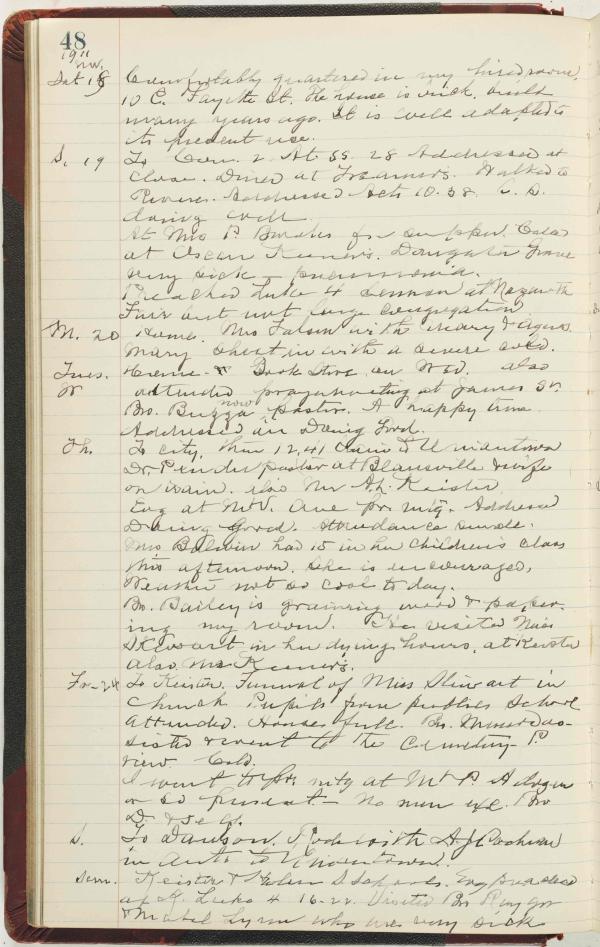 48
1911
Nov.
Sat 18 Comfortably quartered in my hired room,
10 E. Fayette St. The house is brick, built
many years ago. It is well adapted to
its present use.
S. 19 To Con. 2 At SS. 28 Addressed at
close. Dined at Walked to
Rivers. Addressed Acts 10.38. C. S.
doing well.
At Mrs P. for supper. Called
at Oscar Keener's. Daughter Grace
very sick - pneumonia.
Preached Luke 4 sermon at Nazareth
Fair but not large congregation
M. 20 Home. Mrs with Mary & Agnes
Mary shut in with a severe cold.
Tues. Home & Book Store, on also
W attended prayer meeting at James St.
Bro. Buzza now pastor. A happy time
Addressed on Doing Good.
Th. To city, then 12.41 train to Uniontown
Dr pastor at Blairsville & wife
on train. Also Mr Keister
Evg at Mt V. Ave pr. mtg. Address
Doing Good. Attendance small.
Mrs Baldwin had 15 in her children's class
this afternoon. She is encouraged,
Weather not so cool today.
Bro. Bailey is graining wood & paper-
ing my room. He visited Miss
Stewart in her dying hours, at Keister
also Mrs Keener's.
Fr - 24 To Keister. Funeral of Miss Stewart in
church Pupils from public School
attended. House full. Bro. as-
sisted & went to the Cemetery P.
view. Cold.
I went to pr. mtg at Mt P. A dozen
or so present - No men exc. Bro
D. & self.
S. To Dawson. Rode with A. J. Cochran
in Auto to Uniontown.
Sun. Keister & S Schools. Evg preached
at K. Luke 4 16-22. Visited Bro
& Mabel Lynn who are very sick